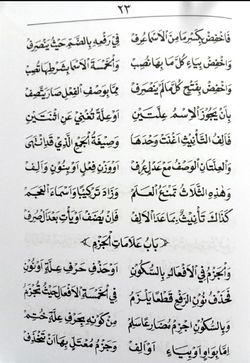 ٢٣
فَاخْفِضْ بِكَسْرٍ مَا مِنَ الْأَسْمَا عُرِفْ فِي رَفْعِهِ بِالضَّمِّ حَيْثُ يَنْصَرِفْ
وَاخْفِضْ بِيَاءٍ كُلَّ مَا بِهَا نُصِبْ وَالْخَمْسَةَ الْأَسْمَا بِشَرْطِهَا تُصِبْ
وَاخْفِضْ بِفَتْحٍ كُلَّ مَا لَمْ يَنْصَرِفْ مِمَّا بِوَصْفِ الْفِعْلِ صَارَ يَتَّصِفْ
بِأَنْ يَحُوزَ الْاِسْمُ عِلَّتَيْنِ أَوْ عِلَّةً تُغْنِي عَنِ اثْنَتَيْنِ
فَأَلِفُ التَّأْنِيثِ أَغْنَتْ وَحْدَهَا وَصِيغَةُ الْجَمْعِ الَّذِي قَدِ انْتَهَى
وَالْعِلَّتَانِ الْوَصْفُ مَعْ عَدْلٍ عُرِفْ أَوْ وَزْنِ فِعْلٍ أَوْ بِنُونٍ وَأَلِفْ
وَهٰذِهِ الثَّلَاثُ تَمْنَعُ الْعَلَمْ وَزَادَ تَرْكِيبًا وَأَسْمَاءَ الْعَجَمْ
كَذَاكَ تَأْنِيثٌ بِمَا عَدَا الْأَلِفْ فَإِنْ يُضَفْ أَوْ يَأْتِ بَعْدَ أَلْ صُرِفْ
﴿ بَابُ عَلَامَاتِ الْجَزْمِ ﴾
وَالْجَزْمُ فِي الْأَفْعَالِ بِالسُّكُونِ أَوْ حَذْفِ حَرْفِ عِلَّةٍ أَوْ نُونِ
فَحَذْفُ نُونِ الرَّفْعِ قَطْعًا يَلْزَمُ فِي الْخَمْسَةِ الْأَفْعَالِ حَيْثُ تُجْزَمُ
وَبِالسُّكُونِ اجْزِمْ مُضَارِعًا سَلِمْ مِنْ كَوْنِهِ بِحَرْفِ عِلَّةٍ خُتِمْ
إِمَّا بِوَاوٍ أَوْ بِيَاءٍ أَوْ أَلِفْ وَجَزْمُ مُعْتَلٍّ بِهَا أَنْ تَنْحَذِفْ